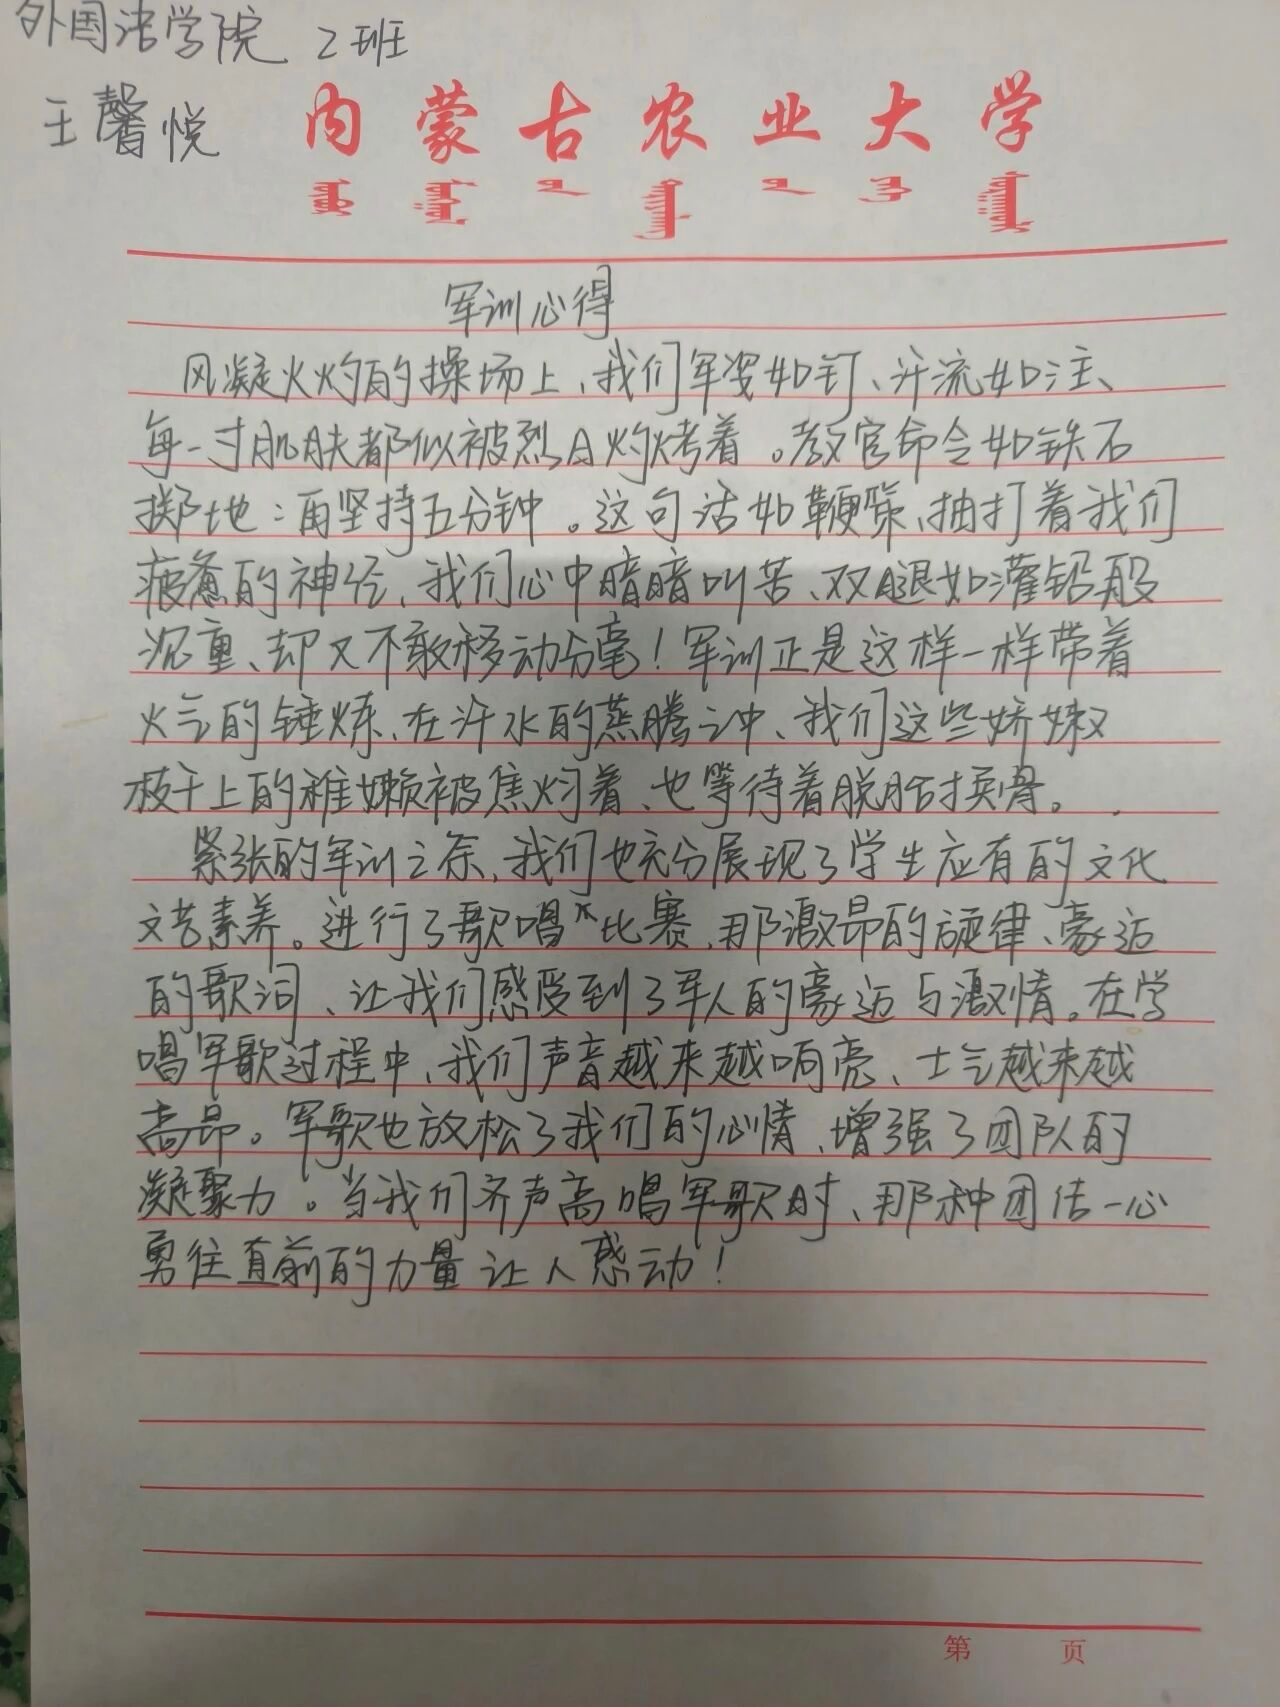 外国语学院 2班
王馨悦
内蒙古农业大学
军训心得
风凝火灼的操场上,我们军姿如钉、汗流如注、
每一寸肌肤都似被烈日灼烤着。教官命令如铁石
掷地:再坚持五分钟。这句话如鞭策,抽打着我们
疲惫的神经,我们心中暗暗叫苦、双腿如灌铅般
沉重、却又不敢移动分毫!军训正是这样一样带着
火气的锤炼、在汗水的蒸腾之中、我们这些娇嫩
枝干上的稚嫩被焦灼着、也等待着脱胎换骨。
紧张的军训之余,我们也充分展现了学生应有的文化
文艺素养。进行了歌唱比赛,那激昂的旋律、豪迈
的歌词、让我们感受到了军人的豪迈与激情。在学
唱军歌过程中,我们声音越来越响亮、士气越来越
高昂。军歌也放松了我们的心情、增强了团队的
凝聚力。当我们齐声高唱军歌时、那种团结一心
勇往直前的力量让人感动!
第 页